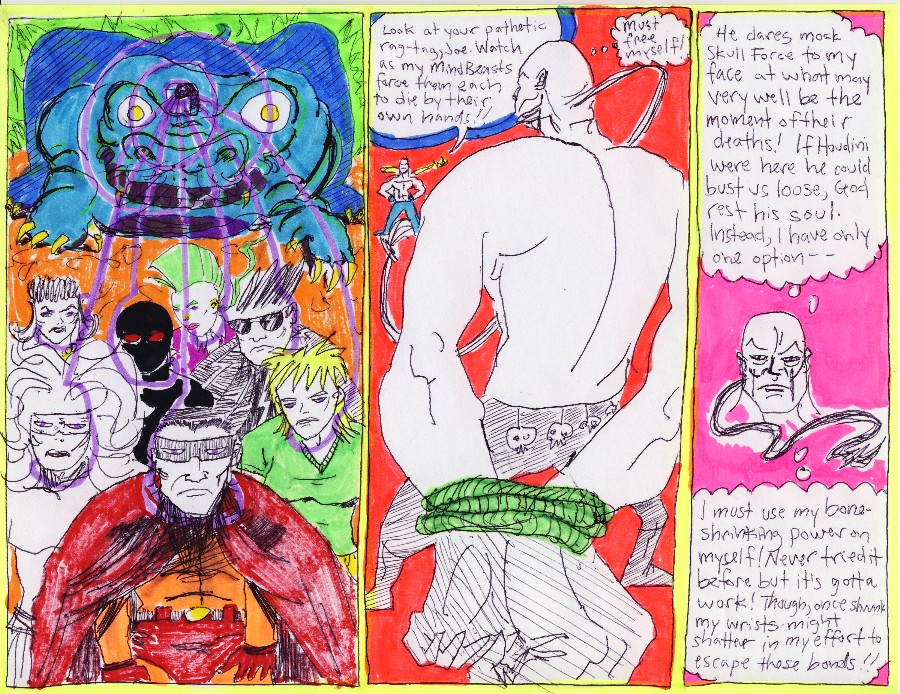 Look at your pathetic
rag-tag, Joe. Watch
as my MindBeasts
force them each
to die by their
own hands!!
must
free
myself!
He dares mock
Skull Force to my
face at what may
very well be the
moment of their
deaths! If Houdini
were here he could
bust us loose, God
rest his soul.
Instead, I have only
one option--
I must use my bone-
shrinking power on
myself! Never tried it
before but it's gotta
work! Though, once shrunk
my wrists might
shatter in my effort to
escape these bonds!!